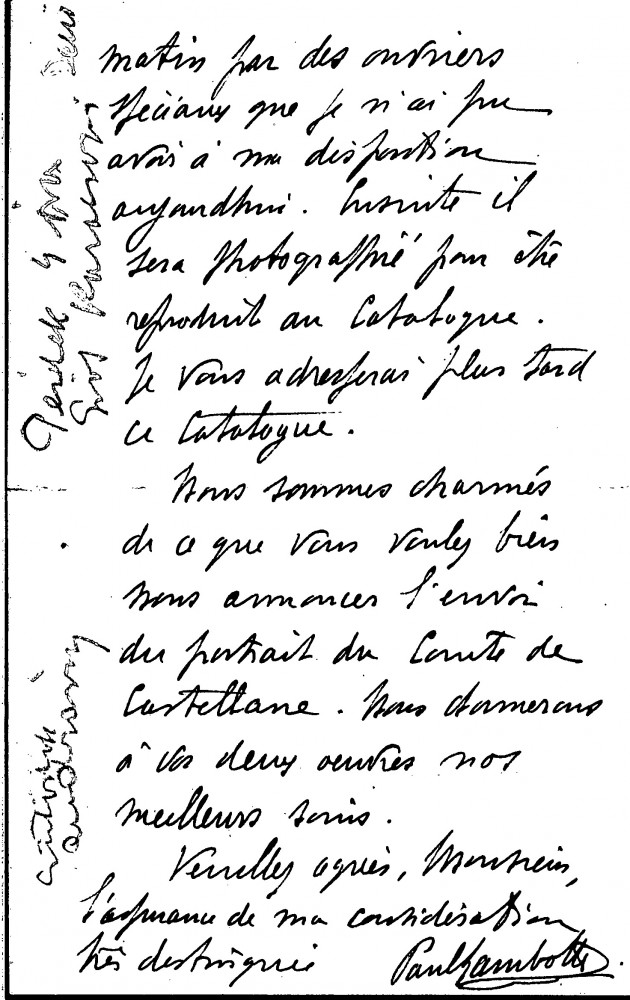 matin par des ouvriers
spéciaux que je n'ai pu
avoir à ma disposition
aujourdhui. Ensuite il
sera photographié pour être
reproduit au Catalogue.
Je vous adresserai plus tard
ce Catalogue.
Nous sommes charmés
de ce que vous voulez bien
nous annoncer l'envoi
du portrait du Comte de
Castellane. Nous donnerons
à vos deux oeuvres nos
meilleurs soins.
Veuillez agréer, Monsieur,
l'assurance de ma considération
très distinguée Paul Lambotte.